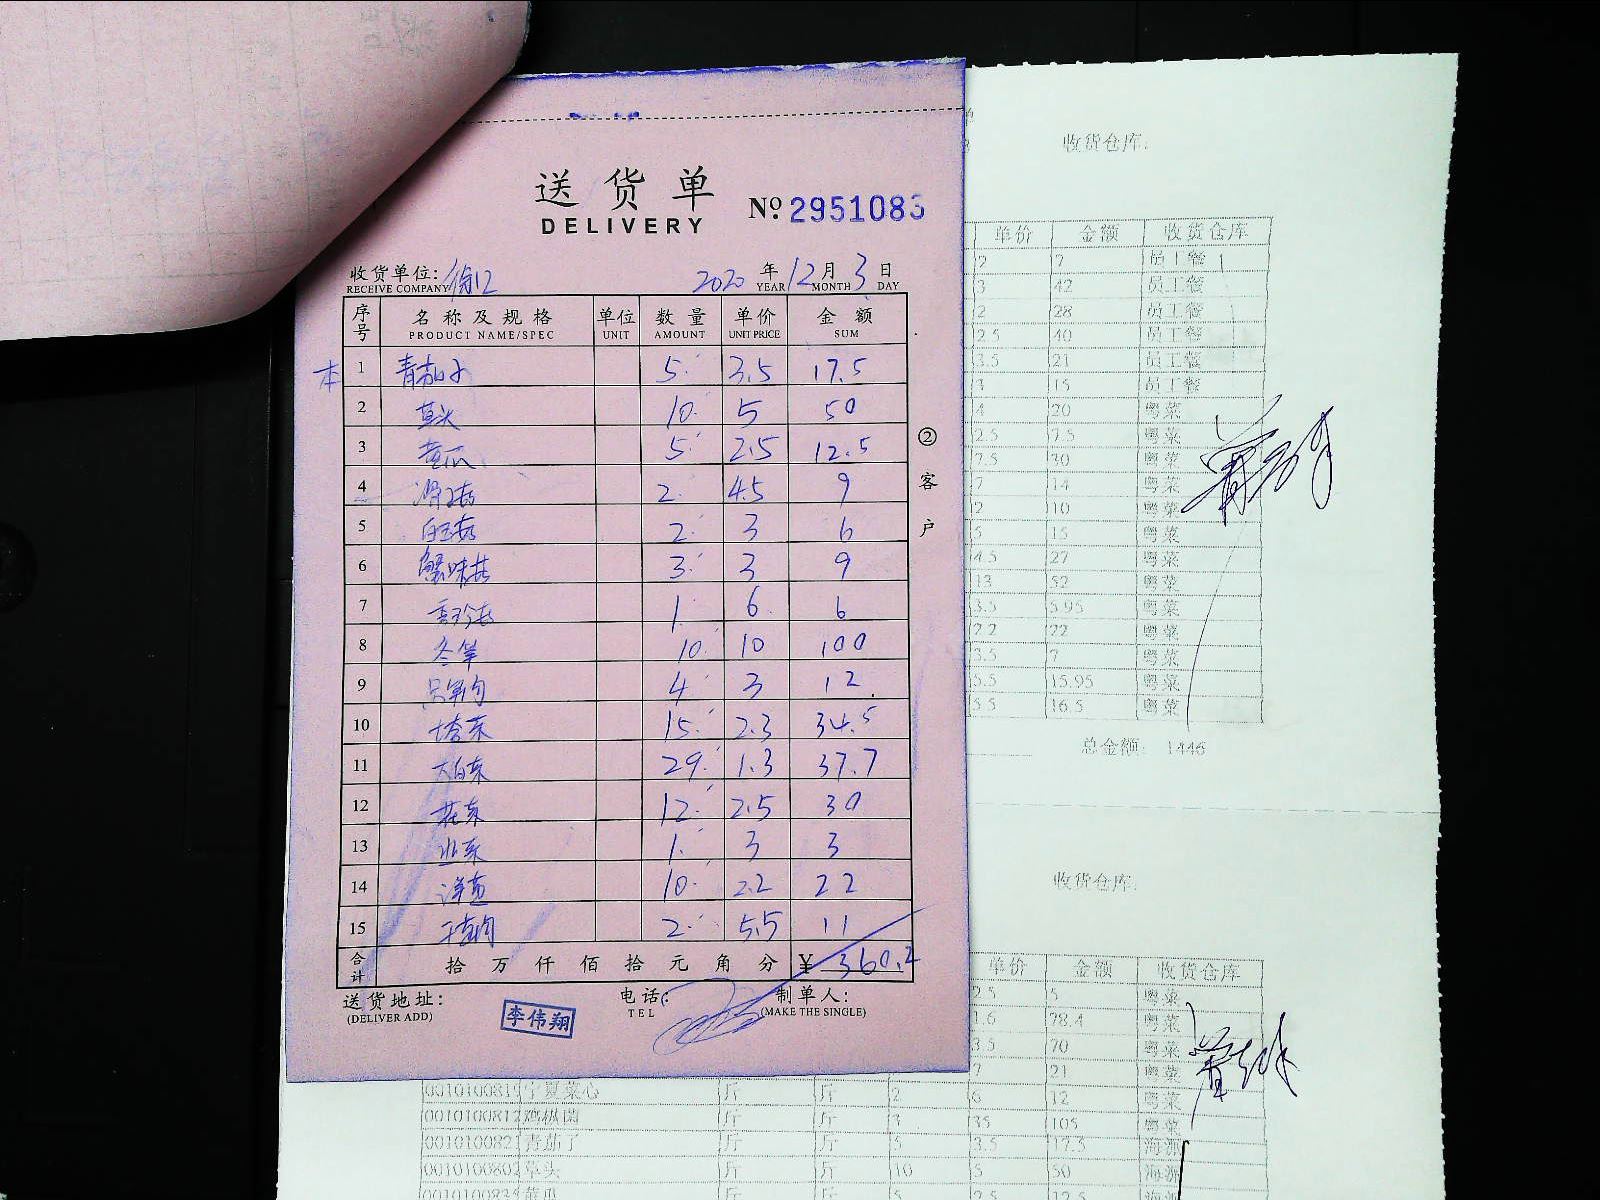 送货单
DELIVERY
№ 2951083
收货单位:
RECEIVE COMPANY
2020 年 12 月 3 日
YEAR MONTH DAY
序号 名称及规格 单位 数量 单价 金额
PRODUCT NAME/SPEC UNIT AMOUNT UNIT PRICE SUM
本 1 青茄子 5 3.5 17.5
2 草头 10 5 50
3 黄瓜 5 2.5 12.5
4 滑子菇 2 4.5 9
5 白玉菇 2 3 6
6 蟹味菇 3 3 9
7 1 6 6
8 冬笋 10 10 100
9 4 3 12
10 塔菜 15 2.3 34.5
11 大白菜 29 1.3 37.7
12 花菜 12 2.5 30
13 韭菜 1 3 3
14 洋葱 10 2.2 22
15 2 5.5 11
合计 拾 万 仟 佰 拾 元 角 分 ¥ 360.2
送货地址:
(DELIVER ADD)
李伟翔
电话:
TEL
制单人:
(MAKE THE SINGLE)
② 客户
收货仓库:
单价 金额 收货仓库
2 7 员工餐
3 42 员工餐
2 28 员工餐
2.5 40 员工餐
3.5 21 员工餐
3 15 员工餐
4 20 粤菜
2.5 7.5 粤菜
7.5 30 粤菜
7 14 粤菜
2 10 粤菜
5 15 粤菜
4.5 27 粤菜
13 52 粤菜
3.5 5.95 粤菜
2.2 22 粤菜
3.5 7 粤菜
5.5 15.95 粤菜
5.5 16.5 粤菜
总金额: 1446
收货仓库:
单价 金额 收货仓库
2.5 5 粤菜
1.6 78.4 粤菜
3.5 70 粤菜
7 21 粤菜
宁夏菜心 斤 斤 2 6 12 粤菜
鸡枞菌 斤 斤 3 35 105 粤菜
青茄子 斤 斤 5 3.5 17.5 海派
草头 斤 斤 10 5 50 海派
黄瓜 斤 斤 5 2.5 12.5 海派